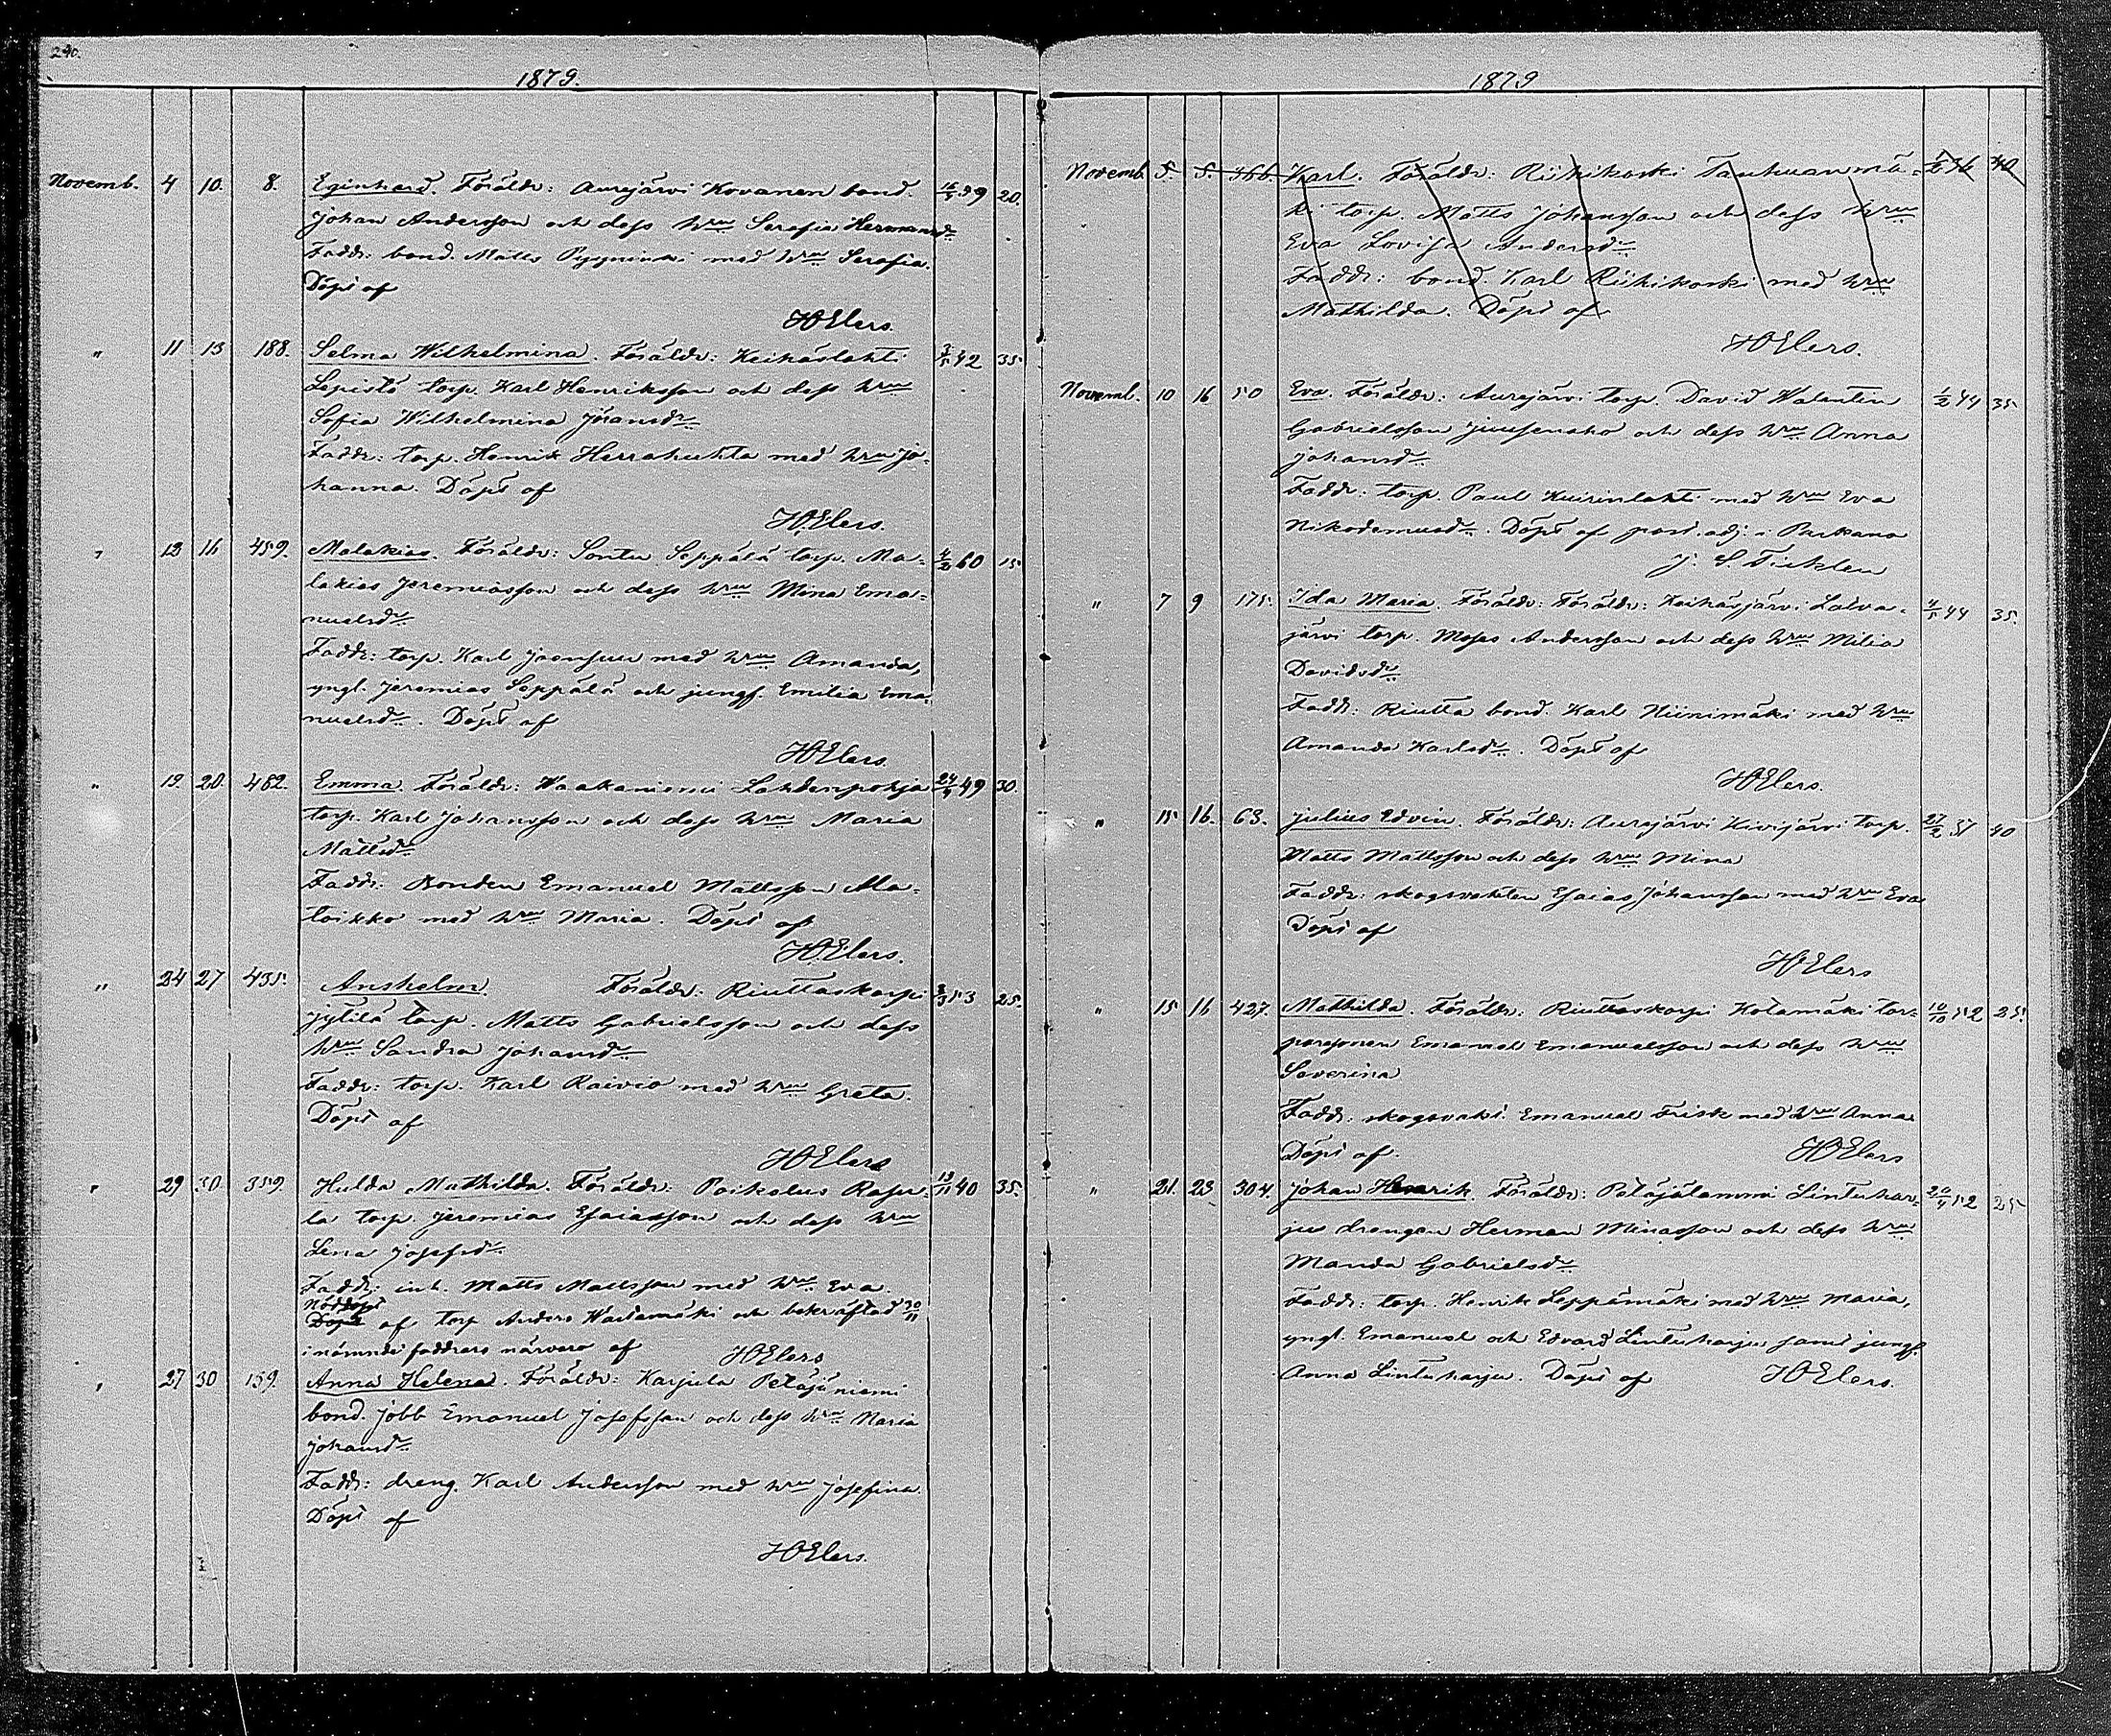 240.
1879.
Novemb. 4 10. 8. Eginhard. Föräldr: Aurejärvi Kovanen bond. 16/5 59 20.
Johan Andersson och dess hru Serafia Hermansdr
Faddr: bond. Matts Pyynini med hru Serafia.
Döpt af
HOElers.
" 11 13 188. Selma Wilhelmina. Föräldr: Keihäslahti 3/5 42 35
Lepistö torp. Karl Henriksson och dess hru
Sofia Wilhelmina Göransdr
Faddr: torp. Henrik Herrahuhta med hru Jo-
hanna. Döpt af
HOElers.
" 13 16 459. Malakias. Föräldr: Sontu Seppälä torp. Ma- 60 15
lakias Jeremiasson och dess hru Mina Ema-
nuelsdr
Faddr: torp. Karl Joonsuu med hru Amanda,
yngl. Jeremias Seppälä och jungf. Emilia Ema-
nuelsdr. Döpt af
HOElers
" 19. 20. 482. Emma. Föräldr: Waakaniemi Lahdenpohja 24/9 49 30.
torp. Karl Johansson och dess hru Maria
Mattsdr
Faddr: Bonden Emanuel Mattsson Ma-
toikko med hru Maria. Döpt af
HOElers.
" 24 27 435. Anshelm. Föräldr: Riuttaskorpi 3/3 53 25.
Jytilä torp. Matts Gabrielsson och dess
hru Sandra Johansdr
Faddr: torp. Karl Raivio med hru Greta.
Döpt af
HOElers
" 29 30 359. Hulda Mathilda. Föräldr: Poikelus Rasu- 13/11 40 35.
la torp. Jeremias Esaiasson och dess hru
Lena Josefsdr
Faddr: inh. Matts Mattsson med hru Eva.
Nöddöpt
Döpt af torp Anders Wastamäki och bekräftad 30/11
i nämnde faddrars närvaro af HOElers
" 27 30 159. Anna Helena. Föräldr: Karjula Petäjäniemi
bond. jobb Emanuel Josefsson och dess hru Maria
Johansdr
Faddr: dreng. Karl Andersson med hru Josefina.
Döpt af
HOElers.
1879
Novemb 5. 5. 366. Karl. Föräldr: Riihikoski Tauhuanmä- 36 40
ki torp. Matts Johansson och dess hru
Eva Lovisa Andersdr
Faddr: bond. Karl Riihikoski med hru
Mathilda. Döpt af
HOElers.
Novemb. 10 16 50 Eva. Föräldr: Aurejärvi torp. David Walentin 1/2 44 35
Gabrielsson Juusenaho och dess hru Anna
Johansdr
Faddr: torp. Paul Kuirinlahti med hru Eva
Nikodemusdr. Döpt af past. adj. i Parkano
J. S. Ticklen
" 7 9 175. Ida Maria. Föräldr: Föräldr: Keihäsjärvi Latva- 4/5 44 35.
järvi torp. Moses Andersson och dess hru Milia
Davidsdr
Faddr: Riutta bond. Karl Niinimäki med hru
Amanda Karlsdr. Döpt af
HOElers.
" 15 16. 63. Julius Edvin. Föräldr: Aurejärvi Kivijärvi torp. 27/2 37 40
Matts Mattsson och dess hru Mina
Faddr: skogsvakten Esaias Johansson med hru Eva
Döpt af
HOElers
" 15 16 427. Mathilda. Föräldr: Riuttaskorpi Kotamäki tor- 10/10 52 25.
parsonen Emanuel Emanuelsson och dess hru
Severina
Faddr: skogsvakt. Emanuel Frisk med hru Anna
Döpt af. HOElers
" 21. 23 304. Johan Henrik. Föräldr: Petäjälammi Lintuhar- 20/4 52 25
ju drengen Herman Minasson och dess hru
Manda Gabrielsdr
Faddr: torp. Henrik Leppämäki med hru Maria,
yngl. Emanuel och Edvard Lintuharju samt jungf.
Anna Lintuharju. Döpt af HOElers.